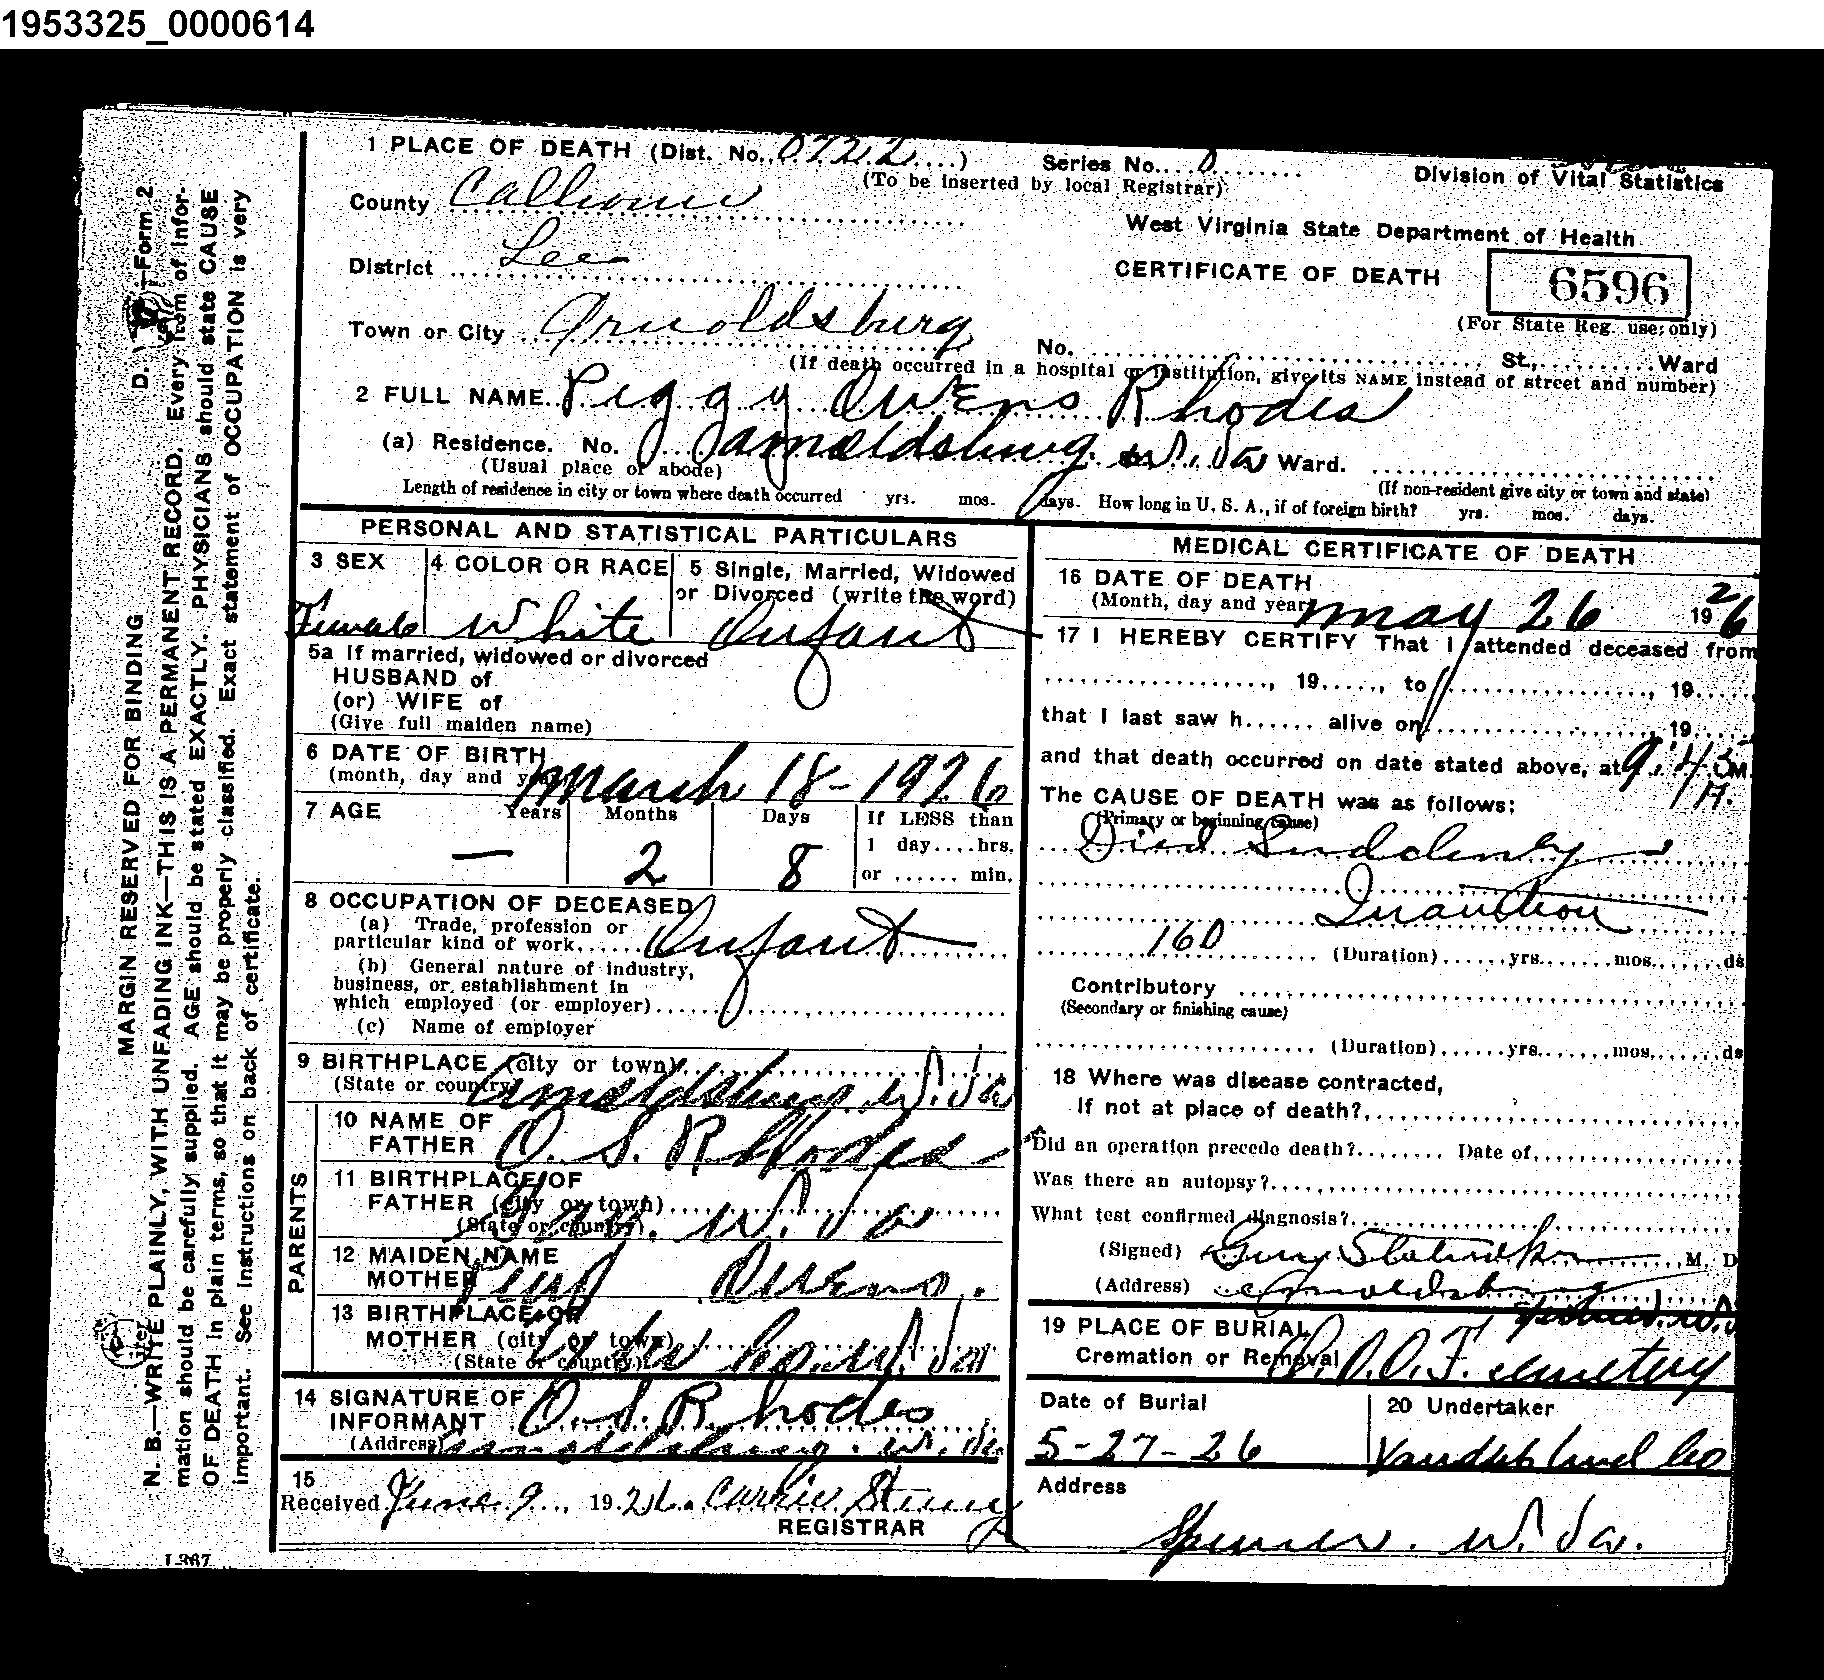 1953325_0000614
1 PLACE OF DEATH (Dist. No. 0722) Series No. 0 Division of Vital Statistics
(To be inserted by local Registrar)
County Calhoun
West Virginia State Department of Health
District Lee
CERTIFICATE OF DEATH 6596
(For State Reg. use only)
Town or City Arnoldsburg
No. St., Ward
(If death occurred in a hospital or institution, give its NAME instead of street and number)
2 FULL NAME Peggy Owens Rhodes
(a) Residence. No. Arnoldsburg W. Va Ward.
(Usual place of abode) (If non-resident give city or town and state)
Length of residence in city or town where death occurred yrs. mos. days. How long in U. S. A., if of foreign birth? yrs. mos. days.
PERSONAL AND STATISTICAL PARTICULARS
3 SEX 4 COLOR OR RACE 5 Single, Married, Widowed
or Divorced (write the word)
Female White Infant
5a If married, widowed or divorced
HUSBAND of
(or) WIFE of
(Give full maiden name)
6 DATE OF BIRTH
(month, day and year) March 18-1926
7 AGE Years Months Days If LESS than
1 day....hrs.
— 2 8 or ...... min.
8 OCCUPATION OF DECEASED
(a) Trade, profession or
particular kind of work Infant
(b) General nature of industry,
business, or establishment in
which employed (or employer)
(c) Name of employer
9 BIRTHPLACE (city or town)
(State or country) Arnoldsburg W. Va
PARENTS
10 NAME OF
FATHER O. S. Rhodes
11 BIRTHPLACE OF
FATHER (city or town)
(State or country) W. Va
12 MAIDEN NAME
MOTHER Owens.
13 BIRTHPLACE OF
MOTHER (city or town)
(State or country) Co. W. Va
14 SIGNATURE OF
INFORMANT O. S. Rhodes
(Address) Arnoldsburg. W. Va
15
Received June 9 1926. Carrie
REGISTRAR
MEDICAL CERTIFICATE OF DEATH
16 DATE OF DEATH
(Month, day and year) May 26 1926
17 I HEREBY CERTIFY That I attended deceased from
, 19....., to , 19
that I last saw h...... alive on , 19
and that death occurred on date stated above, at 9:45 M
A.
The CAUSE OF DEATH was as follows:
(Primary or beginning cause)
Died Suddenly
Inanition
160 (Duration) yrs. mos. ds
Contributory
(Secondary or finishing cause)
(Duration) yrs. mos. ds
18 Where was disease contracted,
if not at place of death?
Did an operation precede death? Date of
Was there an autopsy?
What test confirmed diagnosis?
(Signed) Guy M. D
(Address) Arnoldsburg
19 PLACE OF BURIAL
Cremation or Removal I.O.O.F. cemetery
Spencer W. V
Date of Burial 20 Undertaker
5-27-26 Co
Address
Spencer. W. Va.
D. Form 2
MARGIN RESERVED FOR BINDING
N. B.—WRITE PLAINLY, WITH UNFADING INK—THIS IS A PERMANENT RECORD. Every item of infor-
mation should be carefully supplied. AGE should be stated EXACTLY. PHYSICIANS should state CAUSE
OF DEATH in plain terms, so that it may be properly classified. Exact statement of OCCUPATION is very
important. See instructions on back of certificate.